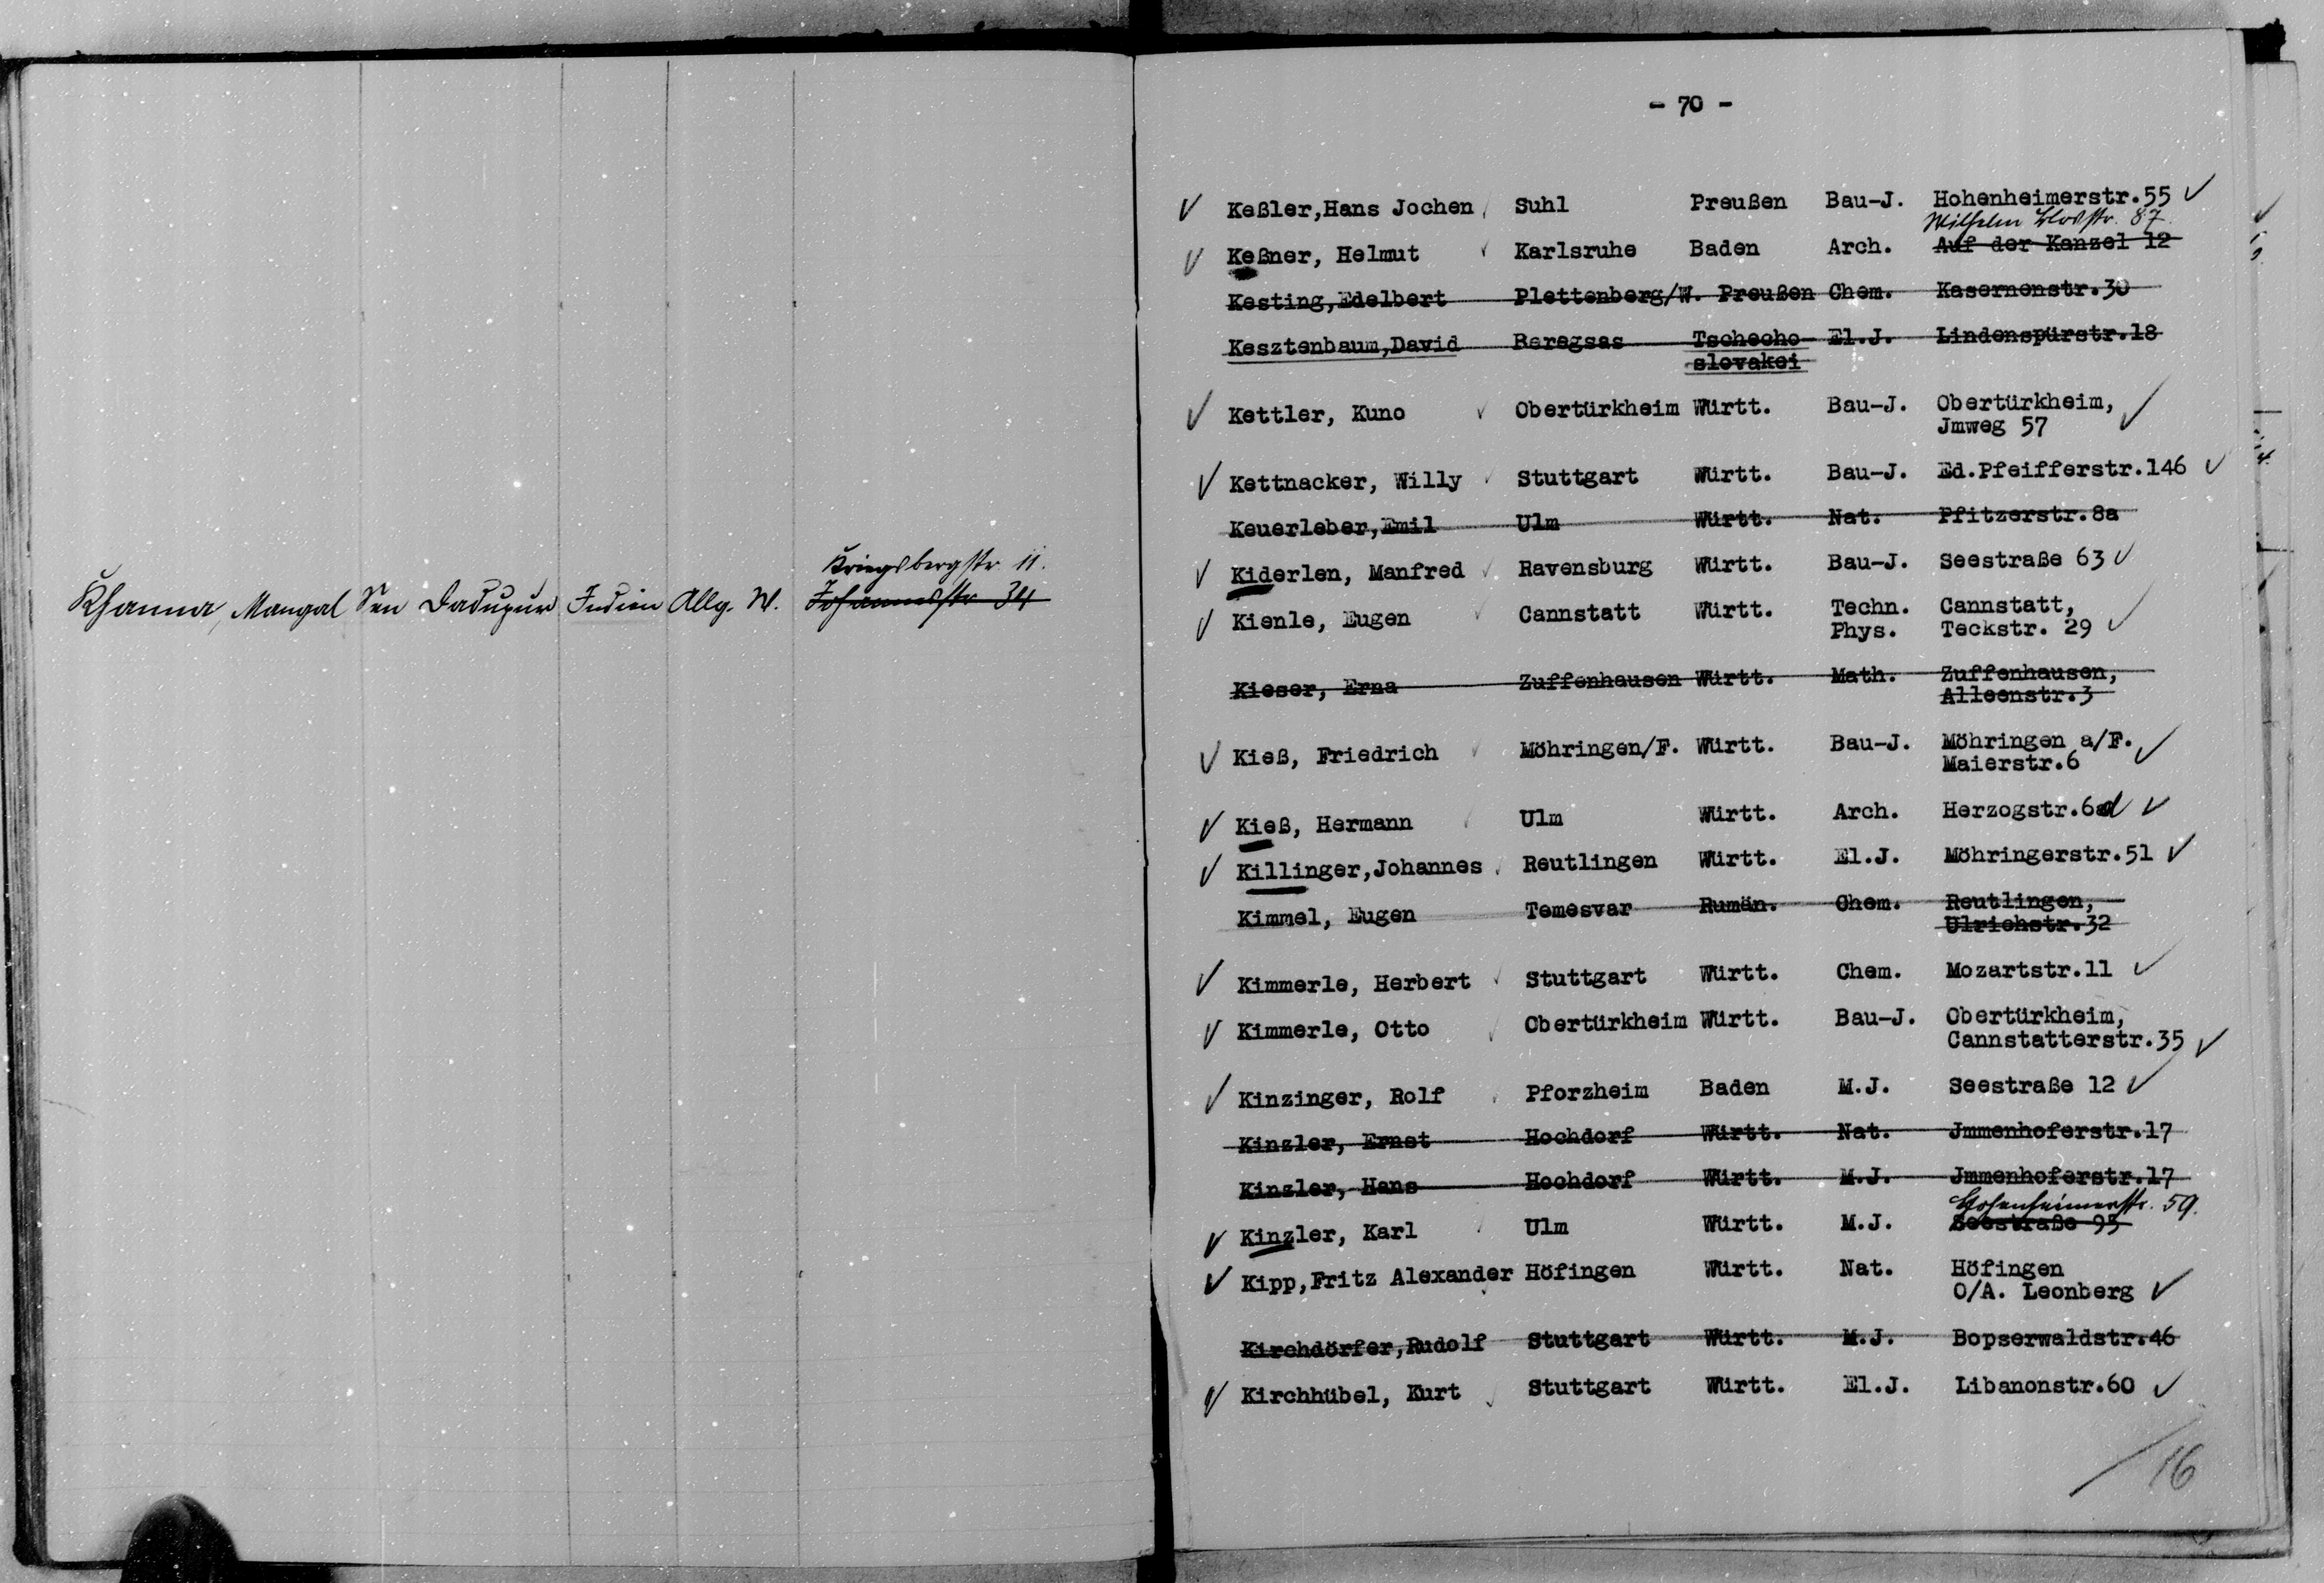 Kriegsbergstr. 11.
Khanna, Mangal Sen Dadupur Indien Allg. W. Johannesstr. 34
- 70 -
Keßler,Hans Jochen Suhl Preußen Bau-J. Hohenheimerstr.55
Wilhelm Blosstr. 87.
Keßner, Helmut Karlsruhe Baden Arch. Auf der Kanzel 12
Kesting,Edelbert Plettenberg/W. Preußen Chem. Kasernenstr.30
Kesztenbaum,David Beregsas Tschecho- El.J. Lindenspürstr.18
slovakei
Kettler, Kuno Obertürkheim Württ. Bau-J. Obertürkheim,
Jmweg 57
Kettnacker, Willy Stuttgart Württ. Bau-J. Ed.Pfeifferstr.146
Keuerleber,Emil Ulm Württ. Nat. Pfitzerstr.8a
Kiderlen, Manfred Ravensburg Württ. Bau-J. Seestraße 63
Kienle, Eugen Cannstatt Württ. Techn. Cannstatt,
Phys. Teckstr. 29
Kieser, Erna Zuffenhausen Württ. Math. Zuffenhausen,
Alleenstr.3
Kieß, Friedrich Möhringen/F. Württ. Bau-J. Möhringen a/F.
Maierstr.6
Kieß, Hermann Ulm Württ. Arch. Herzogstr.6d
Killinger,Johannes Reutlingen Württ. El.J. Möhringerstr.51
Kimmel, Eugen Temesvar Rumän. Chem. Reutlingen,
Ulrichstr.32
Kimmerle, Herbert Stuttgart Württ. Chem. Mozartstr.11
Kimmerle, Otto Obertürkheim Württ. Bau-J. Obertürkheim,
Cannstatterstr.35
Kinzinger, Rolf Pforzheim Baden M.J. Seestraße 12
Kinzler, Ernst Hochdorf Württ. Nat. Jmmenhoferstr.17
Kinzler, Hans Hochdorf Württ. M.J. Jmmenhoferstr.17
Hohenheimerstr. 59.
Kinzler, Karl Ulm Württ. M.J. Seestraße 95
Kipp,Fritz Alexander Höfingen Württ. Nat. Höfingen
O/A. Leonberg
Kirchdörfer,Rudolf Stuttgart Württ. M.J. Bopserwaldstr.46
Kirchhübel, Kurt Stuttgart Württ. El.J. Libanonstr.60
16